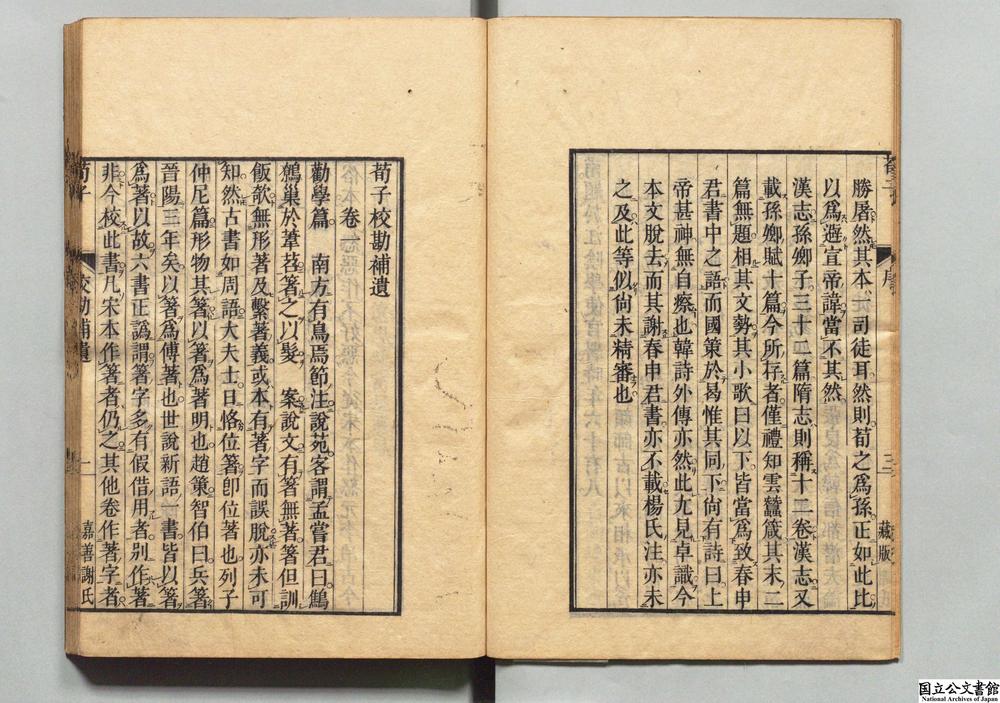 勝屠然其本一司徒耳然則荀之爲孫正如此比
以爲避宣帝諱當不其然
漢志孫卿子三十二篇隋志則稱十二卷漢志又
載孫卿賦十篇今所存者僅禮知雲蠶箴其末二
篇無題相其文勢其小歌曰以下皆當爲致春申
君書中之語而國策於曷惟其同下尙有詩曰上
帝甚神無自瘵也韓詩外傳亦然此尢見卓識今
本文脫去而其謝春申君書亦不載楊氏注亦未
之及此等似尙未精審也
序
三
藏版
荀子校勘補遺
卷一
勸學篇 南方有鳥焉節注說苑客謂孟嘗君曰鷦
鷯巢於葦苕箸之以髮 案說文有箸無著箸但訓
飯欹無形著及繫著義或本有著字而誤脫亦未可
知然古書如周語大夫士日恪位箸卽位著也列子
仲尼篇形物其箸以箸爲著明也趙策智伯曰兵箸
晉陽三年矣以箸爲傅著也世說新語一書皆以箸
爲著以故六書正譌謂箸字多有假借用者別作著
非今校此書凡宋本作箸者仍之其他卷作著字者
荀子
校勘補遺
一
嘉善謝氏
国立公文書館
National Archives of Japan